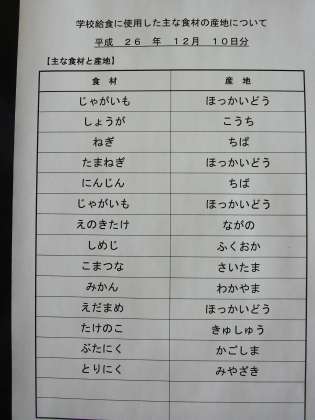 学校給食に使用した主な食材の産地について
平成 26 年 12月 10日分
【主な食材と産地】
食 材 産 地
じゃがいも ほっかいどう
しょうが こうち
ねぎ ちば
たまねぎ ほっかいどう
にんじん ちば
じゃがいも ほっかいどう
えのきたけ ながの
しめじ ふくおか
こまつな さいたま
みかん わかやま
えだまめ ほっかいどう
たけのこ きゅしゅう
ぶたにく かごしま
とりにく みやざき